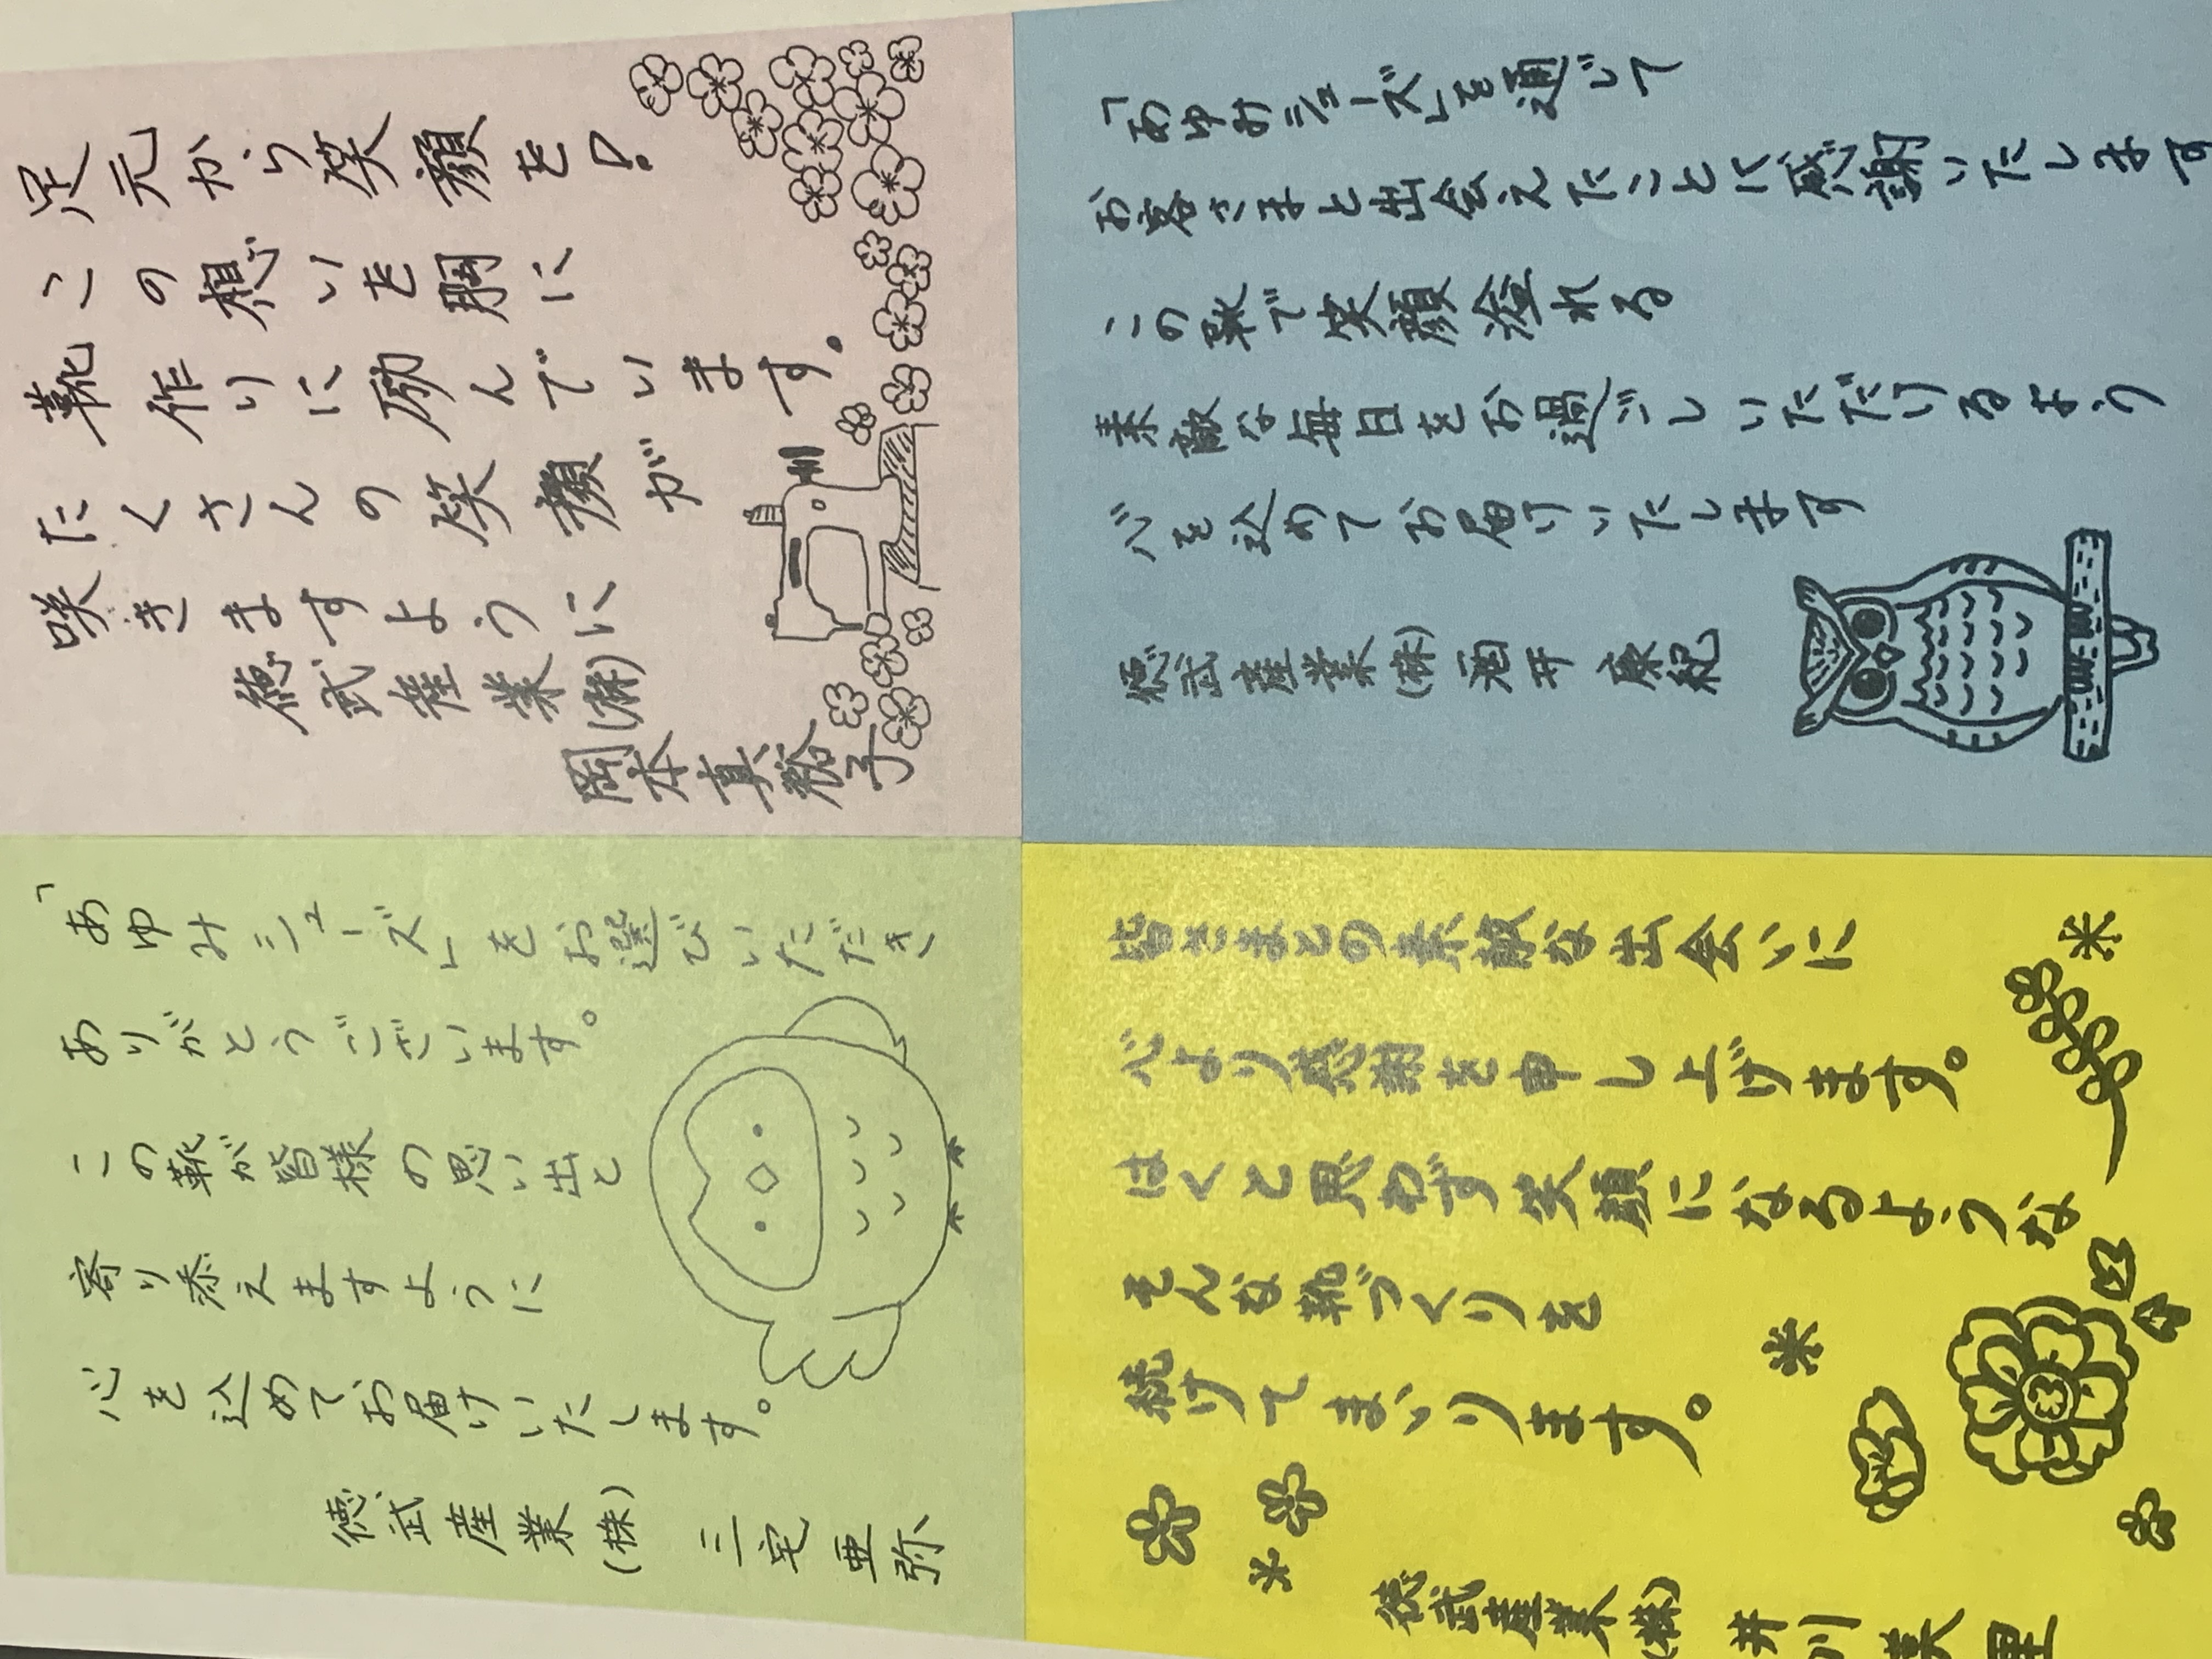 足元から笑顔を!
この想いを胸に
靴作りに励んでいます。
たくさんの笑顔が
咲きますように
徳武産業(株)
岡本真裕子
「あゆみシューズ」を通じて
お客さまと出会えたことに感謝いたします
この靴で笑顔溢れる
素敵な毎日をお過ごしいただけるよう
心を込めてお届けいたします
徳武産業(株) 酒井 康紀
「あゆみシューズ」をお選びいただき
ありがとうございます。
この靴が皆様の思い出と
寄り添えますように
心を込めてお届けいたします。
徳武産業(株) 三宅亜弥
皆さまとの素敵な出会いに
心より感謝を申し上げます。
はくと思わず笑顔になるような
そんな靴づくりを
続けてまいります。
徳武産業(株) 井川美里